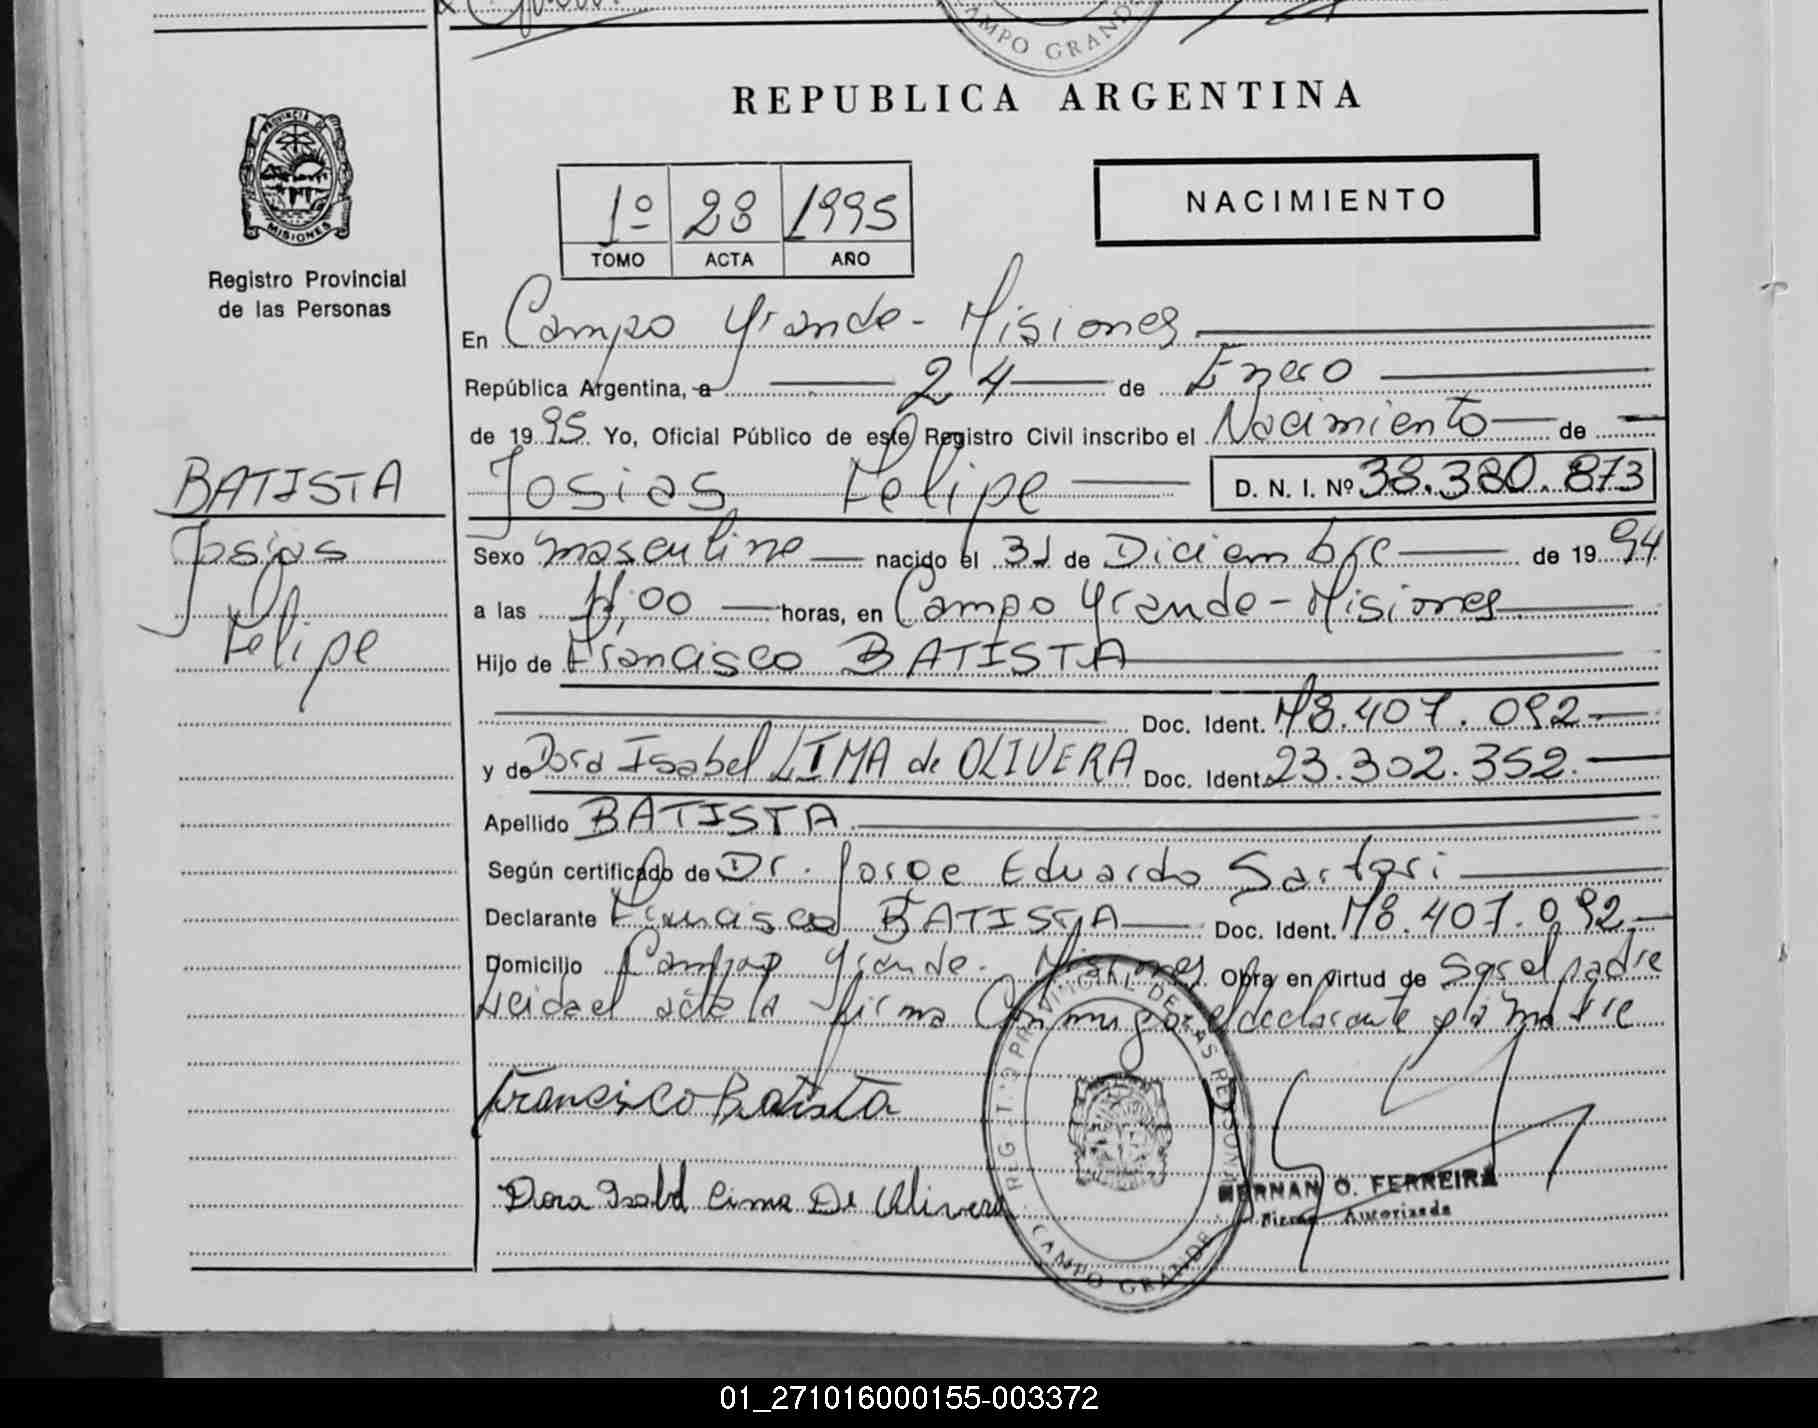 CAMPO GRANDE
REPUBLICA ARGENTINA
PROVINCIA DE
MISIONES
Registro Provincial
de las Personas
1º 28 1995
TOMO ACTA AÑO
NACIMIENTO
En Campo Grande - Misiones
República Argentina, a 24 de Enero
de 1995. Yo, Oficial Público de este Registro Civil inscribo el Nacimiento de
BATISTA
Josias Felipe D. N. I. Nº 38.380.873
Josias
Felipe
Sexo masculino nacido el 31 de Diciembre de 1994
a las 11,00 horas, en Campo Grande - Misiones
Hijo de Francisco BATISTA
Doc. Ident. M8.407.092
y de Dora Isabel LIMA de OLIVERA Doc. Ident. 23.302.352.
Apellido BATISTA
Según certificado de Dr. Jorge Eduardo Sartori
Declarante Francisco BATISTA Doc. Ident. M8.407.092
Domicilio Campo Grande - Misiones Obra en virtud de ser el padre
Leida el acta la firma Conmigo el declarante y la madre
Francisco Batista
Dora Isabel Lima De Olivera
REGISTRO PROVINCIAL DE LAS PERSONAS
CAMPO GRANDE
HERNAN O. FERREIRA
Firma Autorizada
01_271016000155-003372